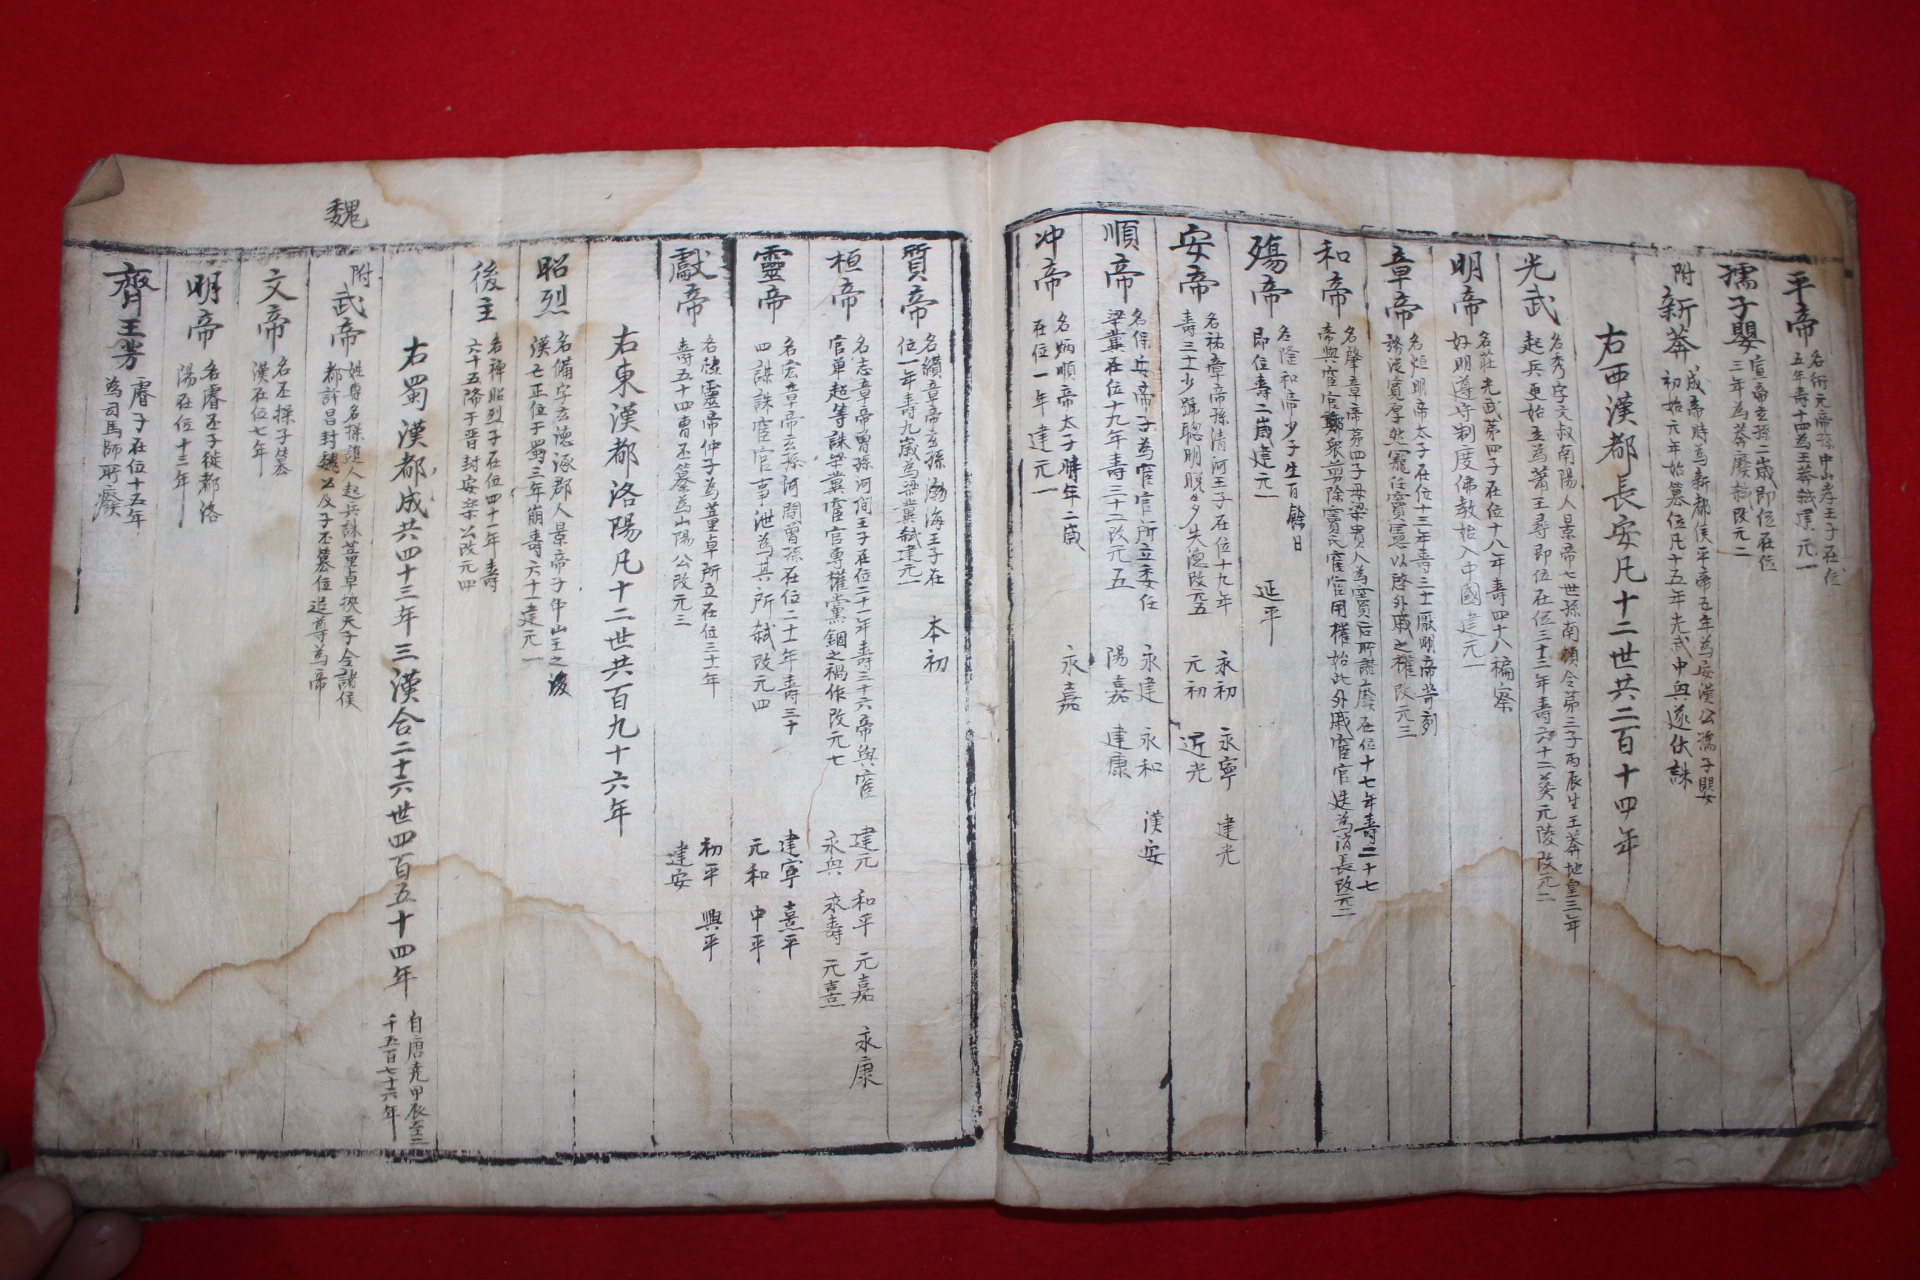 平帝 名衎元帝孫中山孝王子在位
五年壽十四為王莽弑建元一
孺子嬰 宣帝玄孫二歲即位在位
三年為莽廢弑改元二
附新莽 成帝時為新都侯平帝五年為安漢公孺子嬰
初始元年始簒位凡十五年光武中興遂伏誅
右西漢都長安凡十二世共二百十四年
光武 名秀字文叔南陽人景帝七世孫南頓令第三子丙辰生王莽地皇三年
起兵更始立為蕭王尋即位在位三十三年壽六十二葬元陵改元二
明帝 名莊光武第四子在位十八年壽四十八褊察
好明遵守制度佛教始入中國建元一
章帝 名炟明帝太子在位十三年壽三十一厭明帝苛刻
諸浸寬厚然寵任竇憲以啓外戚之權改元三
和帝 名肇章帝第四子母梁貴人為竇后所譖廢在位十七年壽二十七
帝與宦官鄭衆剪除竇氏宦官用權始此外戚宦官迭為消長改元二
殤帝 名隆和帝少子生百餘日
即位壽二歲建元一 延平
安帝 名祐章帝孫清河王子在位十九年 永初 永寧 建光
壽三十二少號聰明晚多失德改元五 元初 延光
順帝 名保安帝子為宦官所立委任 永建 永和 漢安
梁冀在位十九年壽三十二改元五 陽嘉 建康
冲帝 名炳順帝太子時年二歲 永嘉
在位一年建元一
質帝 名纘章帝玄孫渤海王子在 本初
位一年壽九歲為梁冀弑建元一
桓帝 名志章帝曾孫河間王子在位二十一年壽三十六帝與宦 建元 和平 元嘉 永康
官單超等誅梁冀宦官專權黨錮之禍作改元七 永興 永壽 元熹
靈帝 名宏章帝玄孫河間曾孫在位二十一年壽三十 建寧 熹平
四誅誅宦官事泄為其所弑改元四 元和 中平
獻帝 名協靈帝仲子為董卓所立在位三十一年 初平 興平
壽五十四曹丕簒為山陽公改元三 建安
右東漢都洛陽凡十二世共百九十六年
昭烈 名備字玄德涿郡人景帝子中山王之後
漢亡正位于蜀三年崩壽六十三建元一
後主 名禪昭烈子在位四十一年壽
六十五降于晋封安樂公改元四
右蜀漢都成共四十三年三漢合二十六世四百五十四年 自唐堯甲辰至二
千五百七十六年
魏
附武帝 姓曺名操譙人起兵誅董卓挾天子令諸侯
都許昌封魏公及子丕簒位追尊為帝
文帝 名丕操子簒
漢在位七年
明帝 名睿丕子徙都洛
陽在位十三年
齊王芳 睿子在位十五年
為司馬師所廢